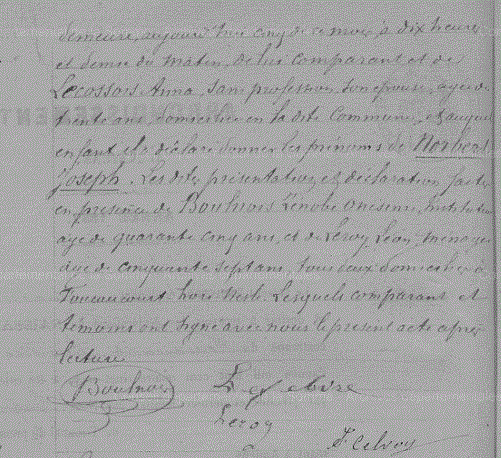 demeure, aujourd'hui cinq de ce mois, à dix heures
et demie du matin, de lui comparant et de
Lecossois Anna, sans profession, son épouse, agée de
trente ans, domiciliée en la dite Commune, et auquel
enfant il a déclaré donner les prénoms de Norbert
Joseph. Les dites présentation et déclaration faites
en présence de Boulnois Zénobe Onésime, instituteur
agé de quarante cinq ans, et de Leroy Léon, ménager
agé de cinquante sept ans, tous deux domiciliés à
lesquels comparant et
témoins ont signé avec nous le présent acte après
lecture
Boulnois
Lefebvre
Leroy